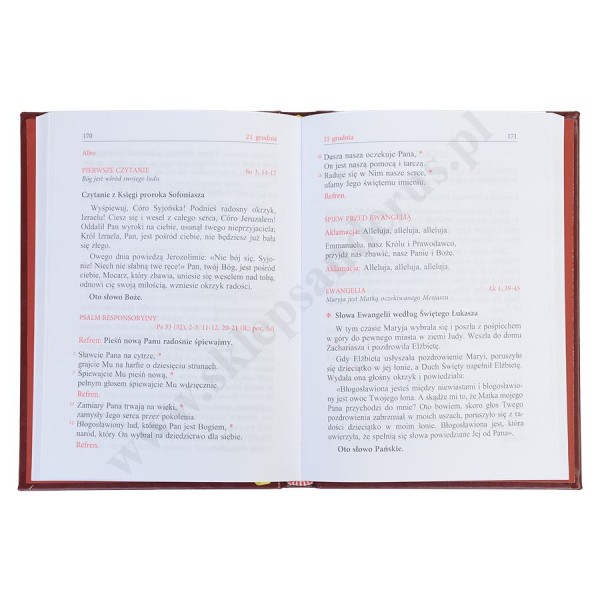 170
21 grudnia
Albo:
PIERWSZE CZYTANIE
So 3, 14-17
Bóg jest wśród swojego ludu
Czytanie z Księgi proroka Sofoniasza
Wyśpiewuj, Córo Syjońska! Podnieś radosny okrzyk,
Izraelu! Ciesz się i wesel z całego serca, Córo Jeruzalem!
Oddalił Pan wyroki na ciebie, usunął twego nieprzyjaciela;
Król Izraela, Pan, jest pośród ciebie, nie będziesz już bała
się złego.
Owego dnia powiedzą Jerozolimie: «Nie bój się, Syjo-
nie! Niech nie słabną twe ręce!» Pan, twój Bóg, jest pośród
ciebie, Mocarz, który zbawia, uniesie się weselem nad tobą,
odnowi cię swoją miłością, wzniesie okrzyk radości.
Oto słowo Boże.
PSALM RESPONSORYJNY
Ps 33 (32), 2-3. 11-12. 20-21 (R.: por. 3a)
Refren: Pieśń nową Panu radośnie śpiewajmy.
Sławcie Pana na cytrze, *
grajcie Mu na harfie o dziesięciu strunach.
Śpiewajcie Mu pieśń nową, *
pełnym głosem śpiewajcie Mu wdzięcznie.
Refren.
Zamiary Pana trwają na wieki, *
zamysły Jego serca przez pokolenia.
Błogosławiony lud, którego Pan jest Bogiem, *
naród, który On wybrał na dziedzictwo dla siebie.
Refren.
21 grudnia
171
Dusza nasza oczekuje Pana, *
On jest naszą pomocą i tarczą.
Raduje się w Nim nasze serce, *
ufamy Jego świętemu imieniu.
Refren.
ŚPIEW PRZED EWANGELIĄ
Aklamacja: Alleluja, alleluja, alleluja.
Emmanuelu, nasz Królu i Prawodawco,
przyjdź nas zbawić, nasz Panie i Boże.
Aklamacja: Alleluja, alleluja, alleluja.
EWANGELIA
Łk 1, 39-45
Maryja jest Matką oczekiwanego Mesjasza
✠ Słowa Ewangelii według Świętego Łukasza
W tym czasie Maryja wybrała się i poszła z pośpiechem
w góry do pewnego miasta w ziemi Judy. Weszła do domu
Zachariasza i pozdrowiła Elżbietę.
Gdy Elżbieta usłyszała pozdrowienie Maryi, poruszyło
się dzieciątko w jej łonie, a Duch Święty napełnił Elżbietę.
Wydała ona głośny okrzyk i powiedziała:
«Błogosławiona jesteś między niewiastami i błogosławio-
ny jest owoc Twojego łona. A skądże mi to, że Matka mojego
Pana przychodzi do mnie? Oto bowiem, skoro głos Twego
pozdrowienia zabrzmiał w moich uszach, poruszyło się z ra-
dości dzieciątko w moim łonie. Błogosławiona jest, która
uwierzyła, że spełnią się słowa powiedziane Jej od Pana».
Oto słowo Pańskie.